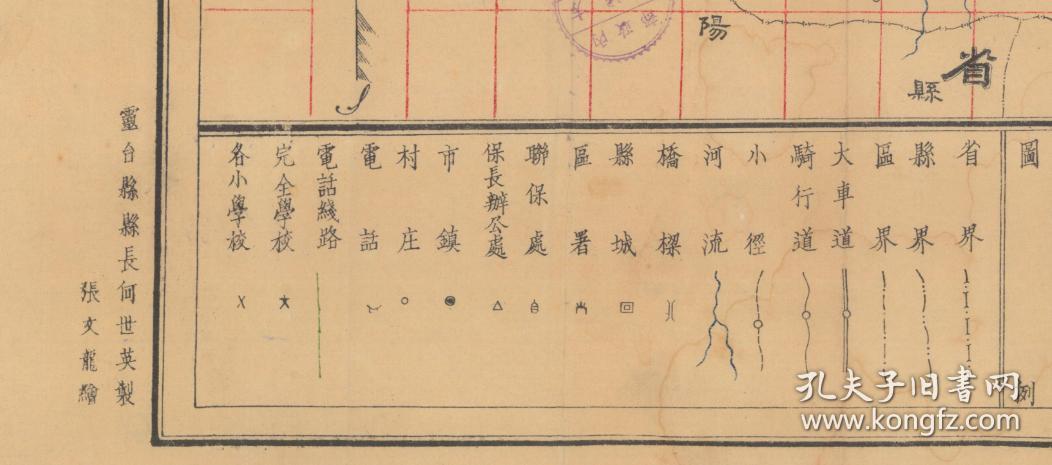 陽
省
縣
圖例
省界
縣界
區界
大車道
騎行道
小徑
河流
橋樑
縣城
區署
聯保處
保長辦公處
市鎮
村庄
電話
電話綫路
完全學校
各小學校
靈台縣縣長何世英製
張文龍繪
孔夫子旧书网
www.kongfz.com